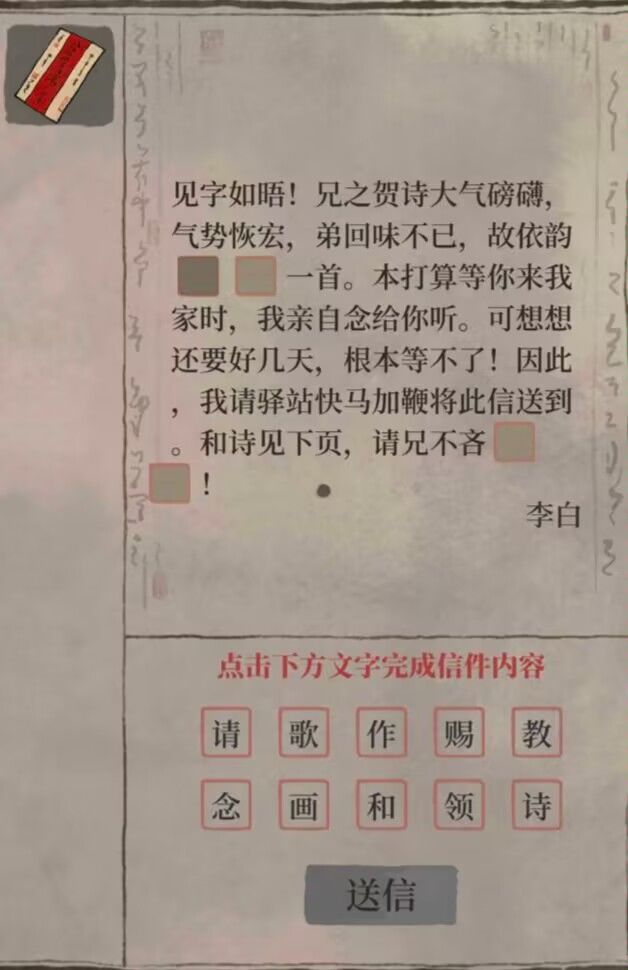 见字如晤！兄之贺诗大气磅礴，
气势恢宏，弟回味不已，故依韵
一首。本打算等你来我
家时，我亲自念给你听。可想想
还要好几天，根本等不了！因此
，我请驿站快马加鞭将此信送到
。和诗见下页，请兄不吝
！
李白
点击下方文字完成信件内容
请 歌 作 赐 教
念 画 和 领 诗
送信